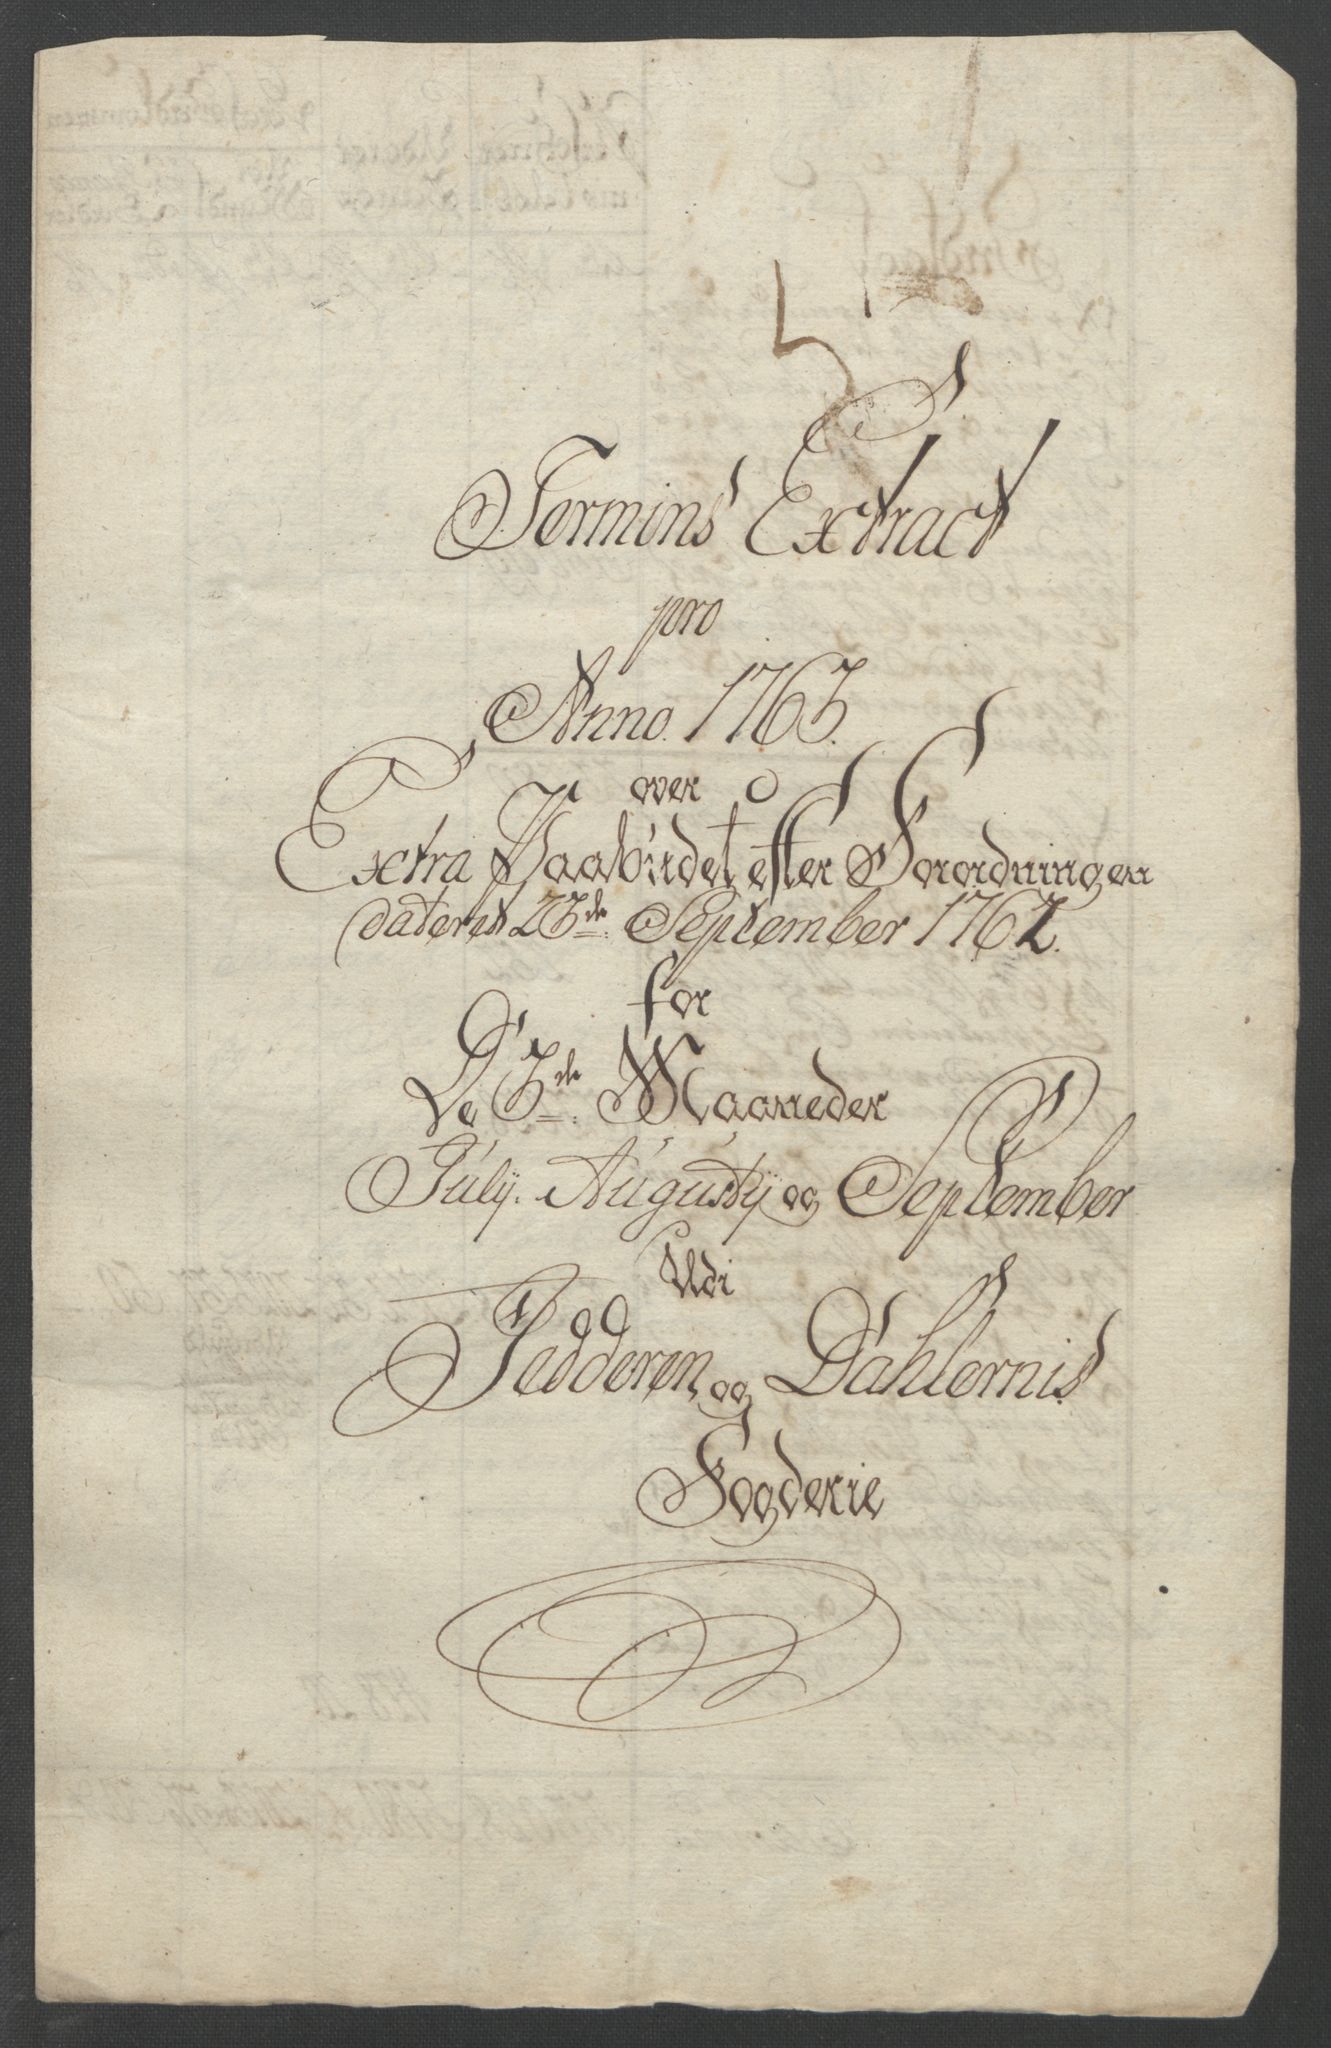 Termins Extract
pro
Anno. 1763.
over
Extra Paabudet efter Forordningen
dateret 23de September 1762.
for
De 3de Maaneder
Julij. Augustij og September
Udi
Jedderen og Dahlernis
Fogderie